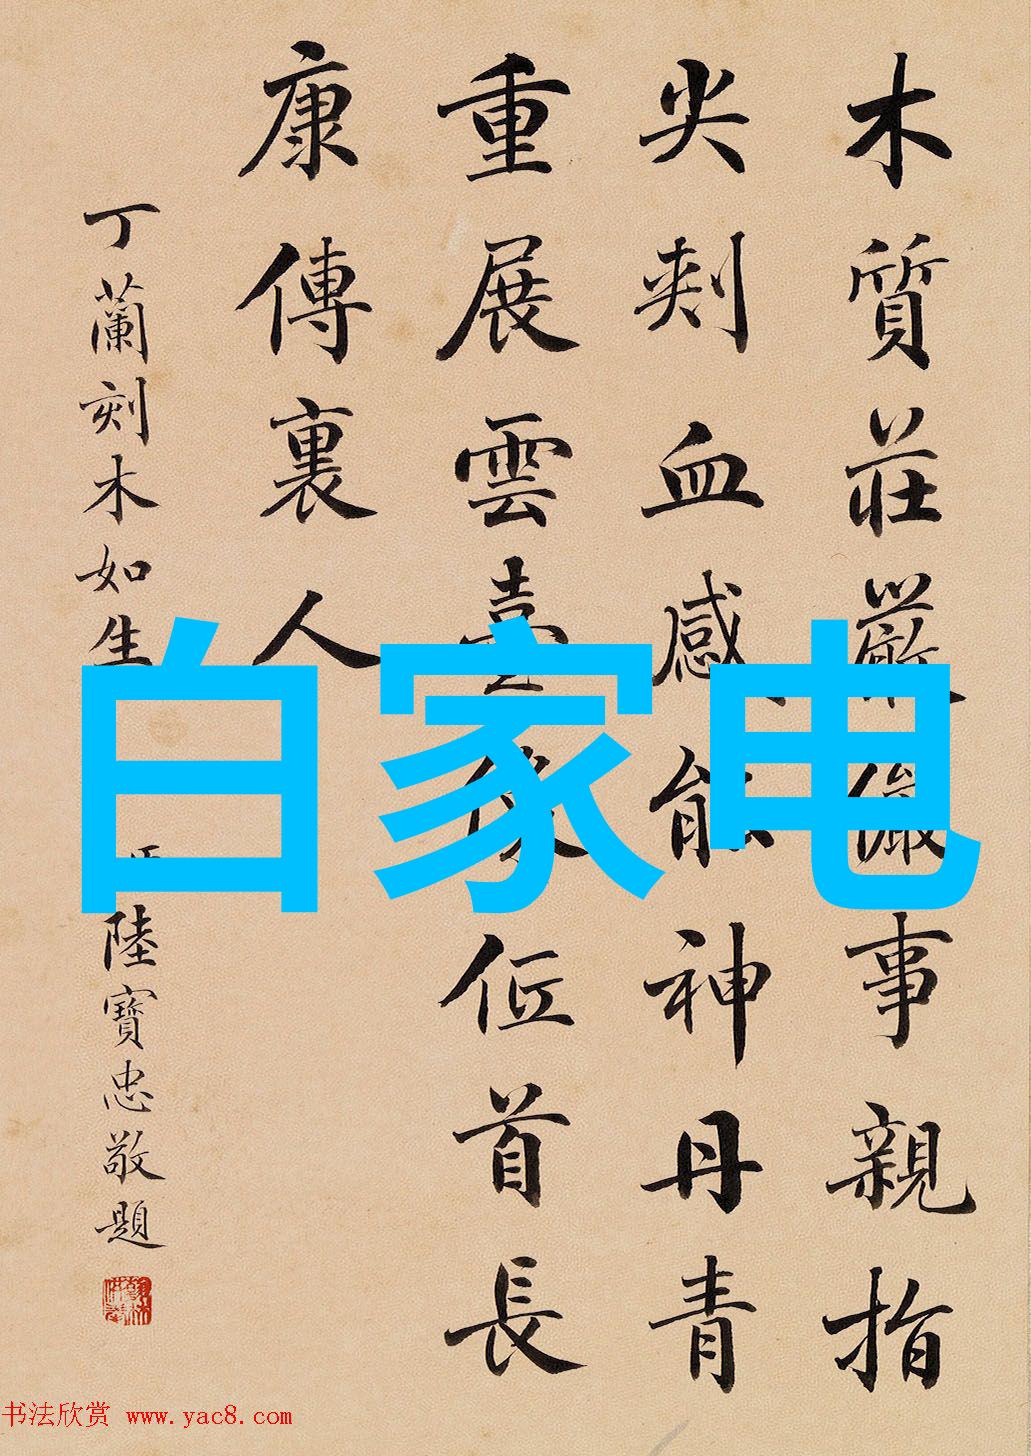 木質莊嚴儼事親指
尖刾血感能神丹青
重展雲臺像首長
康傳裏人
丁蘭刻木如生
陸寶忠敬題
白家电
书法欣赏 www.yac8.com